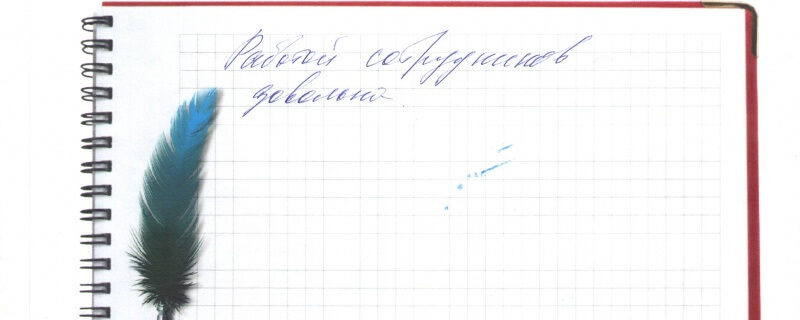 Работой сотрудников
довольна.